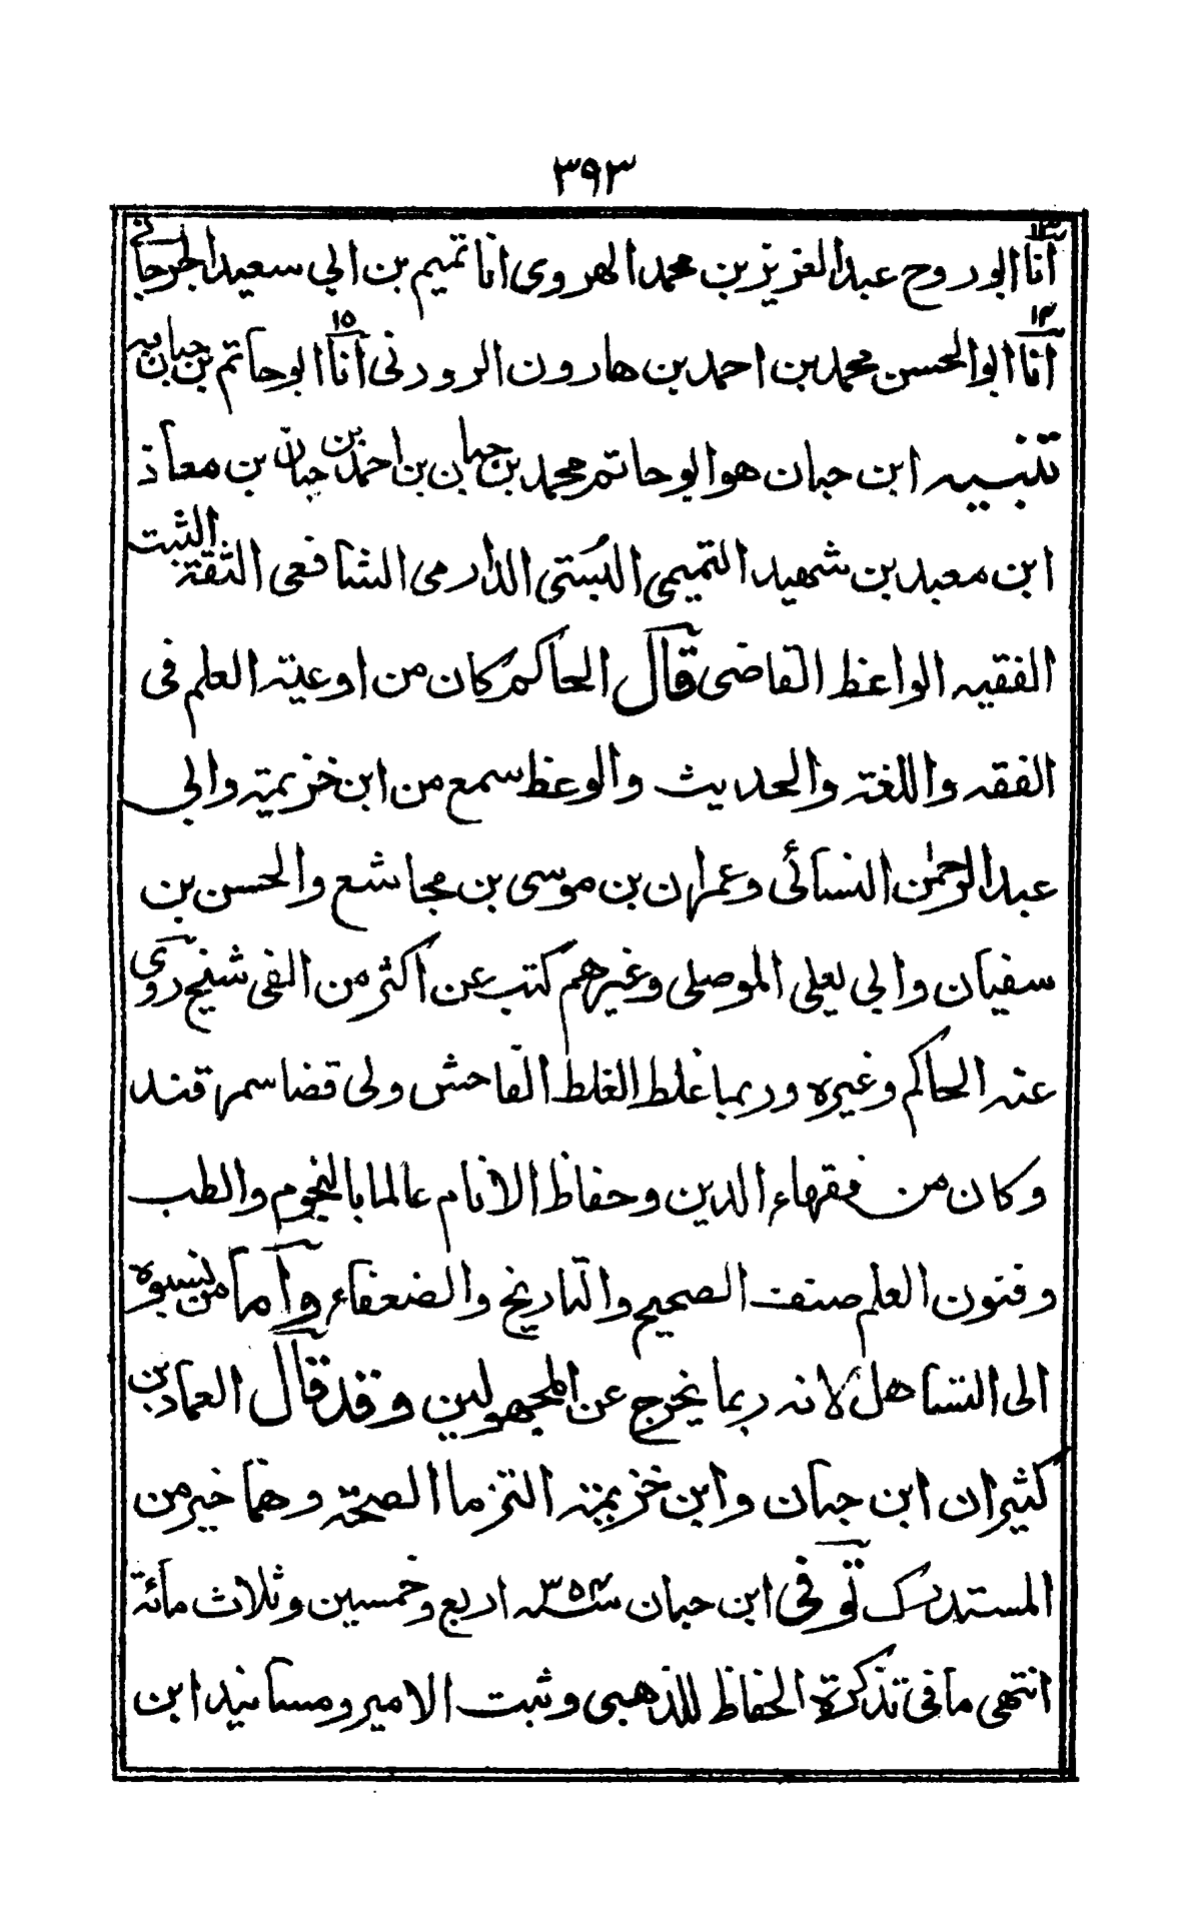 ٣٩٣
١٣
انا ابو روح عبد العزيز بن محمد الهروى انا تميم بن ابى سعيد الجرجانى
١٤ ١٥
انا ابو الحسن محمد بن احمد بن هارون الرودنى انا ابو حاتم بن حبان به
تنبيه ابن حبان هو ابو حاتم محمد بن حبان بن احمد بن حبان بن معاذ
ابن معبد بن شهيد التميمى البُستى الدارمى الشافعى الثقة الثبت
الفقيه الواعظ القاضى قال الحاكم كان من اوعية العلم فى
الفقه واللغة والحديث والوعظ سمع من ابن خزيمة وابى
عبد الرحمٰن النسائى وعمران بن موسى بن مجاشع والحسن بن
سفيان وابى يعلى الموصلى وغيرهم كتب عن اكثر من الفى شيخ روى
عنه الحاكم وغيره وربما غلط الغلط الفاحش ولى قضا سمرقند
وكان من فقهاء الدين وحفاظ الانام عالما بالنجوم والطب
وفنون العلم صنف الصحيح والتاريخ والضعفاء واما من نسبوه
الى التساهل لانه ربما يخرج عن المجهولين وقد قال العماد بن
كثير ان ابن حبان وابن خزيمة التزما الصحة وهما خير من
المستدرك توفى ابن حبان سنه ٣٥٤ اربع وخمسين وثلاث مائة
انتهى ما فى تذكرة الحفاظ للذهبى وثبت الامير ومسانيد ابن